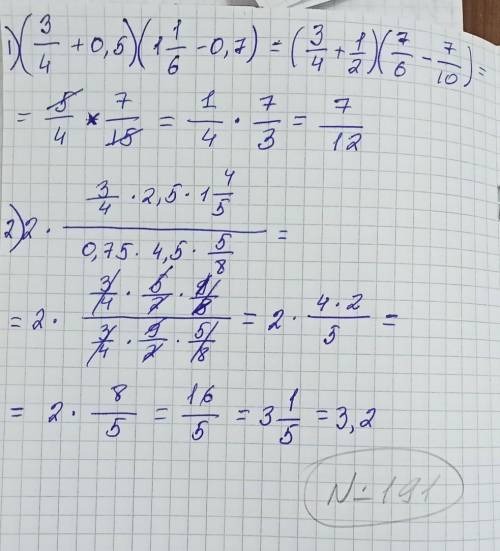 1) (3/4 + 0,5)(1 1/6 - 0,7) = (3/4 + 1/2)(7/6 - 7/10) =
= 5/4 * 7/15 = 1/4 · 7/3 = 7/12
2) 2 · (3/4 · 2,5 · 1 4/5)/(0,75 · 4,5 · 5/8) =
= 2 · (3/4 · 5/2 · 9/5)/(3/4 · 9/2 · 5/8) = 2 · (4 · 2)/5 =
= 2 · 8/5 = 16/5 = 3 1/5 = 3,2
N=191